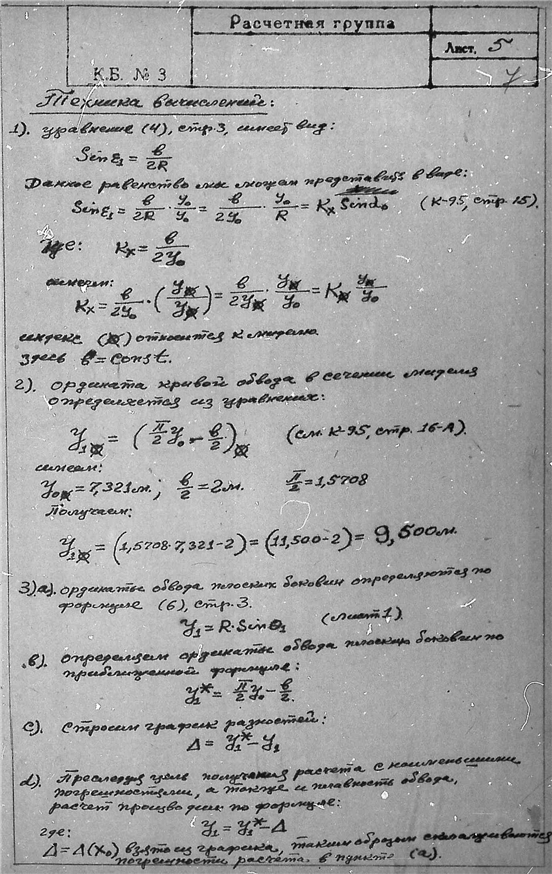 Расчетная группа
К.Б. № 3
Лист. 5
7
Техника вычислений:
1). уравнение (4), стр.3, имеет вид:
Sin ε₁ = в/2R
Данное равенство мы можем представить в виде:
Sin ε₁ = в/2R · y₀/y₀ = в/2y₀ · y₀/R = Kₓ Sin α₀ (К-95, стр. 15).
где: Kₓ = в/2y₀
имеем:
Kₓ = в/2y₀ · (y⦻/y⦻) = в/2y⦻ · y⦻/y₀ = K⦻ y⦻/y₀
индекс (⦻) относится к миделю.
здесь в = const.
2). ордината кривой обвода в сечении миделя
определяется из уравнения:
y₁⦻ = (π/2 y₀ - в/2)⦻ (см. К-95, стр. 16-А).
имеем:
y₀⦻ = 7,321м.; в/2 = 2м. π/2 = 1,5708
Получаем:
y₁⦻ = (1,5708·7,321-2) = (11,500-2) = 9,500м.
3).а). ординаты обвода плоских боковин определяются по
формуле (6), стр.3.
y₁ = R·Sin θ₁ (лист 1).
в). определяем ординаты обвода плоских боковин по
приближенной формуле:
y₁* = π/2 y₀ - в/2.
с). Строим график разностей:
Δ = y₁* - y₁
d). Преследуя цель получения расчета с наименьшими
погрешностями, а также и плавность обвода,
расчет производим по формуле:
y₁ = y₁* - Δ
где:
Δ = Δ(x₀) взято из графика, таким образом сглаживаются
погрешности расчета в пункте (а).